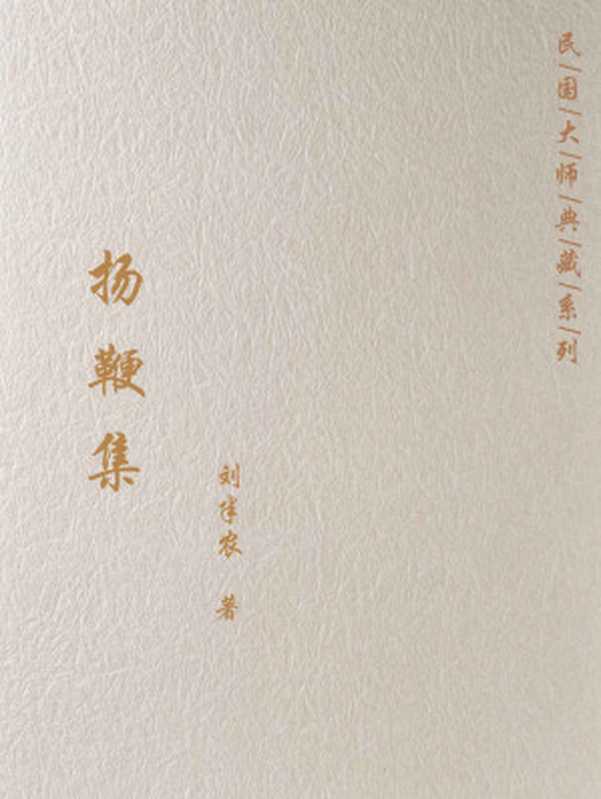 民/国/大/师/典/藏/系/列
扬鞭集
刘半农 著